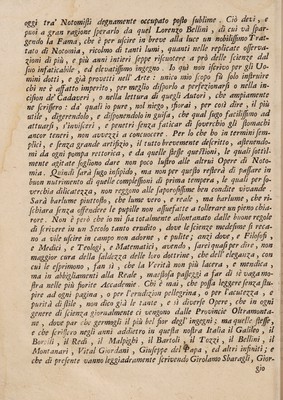 oggi tra' Notomisti degnamente occupato posto sublime. Ciò devi, e
puoi a gran ragione sperarlo da quel Lorenzo Bellini, di cui và spar-
gendo la Fama, che è per uscire in breve alla luce un nobilissimo Trat-
tato di Notomia, ricolmo di tanti lumi, quanti nelle replicate osserva-
zioni di più, e più anni intieri seppe riscuotere a prò delle scienze dal
suo infaticabile, ed elevatissimo ingegno. Io quì non iscrivo per gli Uo-
mini dotti, e già provetti nell' Arte: unico mio scopo fù solo instruire
chi ne è affatto imperito, per meglio disporlo a perfezionarsi o nella in-
cision de' Cadaveri, o nella lettura di quegli Autori, che ampiamente
ne scrissero: da' quali io pure, nel niego, sfiorai, per così dire, il più
utile, digerendolo, e disponendolo in guisa, che qual sugo facilissimo ad
attuarsi, s'insinui, e penetri senza faticar di soverchio gli stomachi
ancor teneri, non avvezzi a concuocere. Per lo che ho in termini sem-
plici, e senza grande artifizio, il tutto brevemente descritto, astenendo-
mi da ogni pompa rettorica, e da quelle stesse questioni, le quali inutil-
mente agitate sogliono dare non poco lustro alle altrui Opere di Noto-
mia. Quindi sarà sugo insipido, ma non per questo resterà di passare in
buon nutrimento di quelle complessioni di prima tempera, le quali per so-
verchia dilicatezza, non reggono alle saporosissime ben condite vivande.
Sarà barlume piuttosto, che lume vero, e reale, ma barlume, che ri-
schiara senza offendere le pupille non assuefatte a tollerare un pieno chia-
rore. Non è però che io mi sia totalmente allontanato dalle buone regole
di scrivere in un Secolo tanto erudito, dove le scienze medesime si reca-
no a vile uscire in campo non adorne, e pulite; anzi dove, e Filosofi,
e Medici, e Teologi, e Matematici, avendo, sarei quasi per dire, non
maggior cura della saldezza delle loro dottrine, che dell'eleganza, con
cui le esprimono, fan sì, che la Verità non più lacera, e mendica,
ma in abbigliamenti alla Reale, maestosa passeggi a far di se vaga mo-
stra nelle più fiorite Accademie. Chi è mai, che possa leggere senza stu-
pire ad ogni pagina, o per l'erudizion pellegrina, o per l'acutezza, e
purità di stile, non dico già le tante, e sì diverse Opere, che in ogni
genere di scienza giornalmente ci vengono dalle Provincie Oltramonta-
ne, dove par che germogli il più bel fior degl' ingegni; ma quelle stesse,
e che scrissero negli anni addietro in questa nostra Italia il Galileo, il
Borelli, il Redi, il Malpighi, il Bartoli, il Tozzi, il Bellini, il
Montanari, Vital Giordani, Giuseppe del Papa, ed altri infiniti; e
che di presente vanno leggiadramente scrivendo Girolamo Sbaragli, Gior-
gio